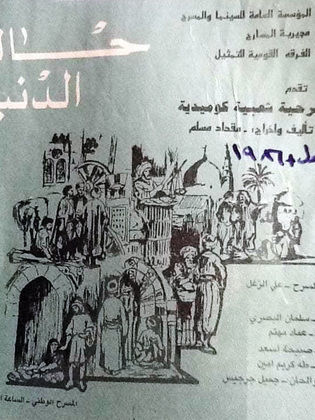 المؤسسة العامة للسينما والمسرح
مديرية المسارح
الفرقة القومية للتمثيل
تقدم
رحية شعبية كوميدية
تأليف واخراج : مقداد مسلم
حال
الدنيا
١٩٨٦
المسرح - علي الزغل
سلمان البصري
عماد مهتم
صبيحة اسعد
طه كريم امين
والحان - جميل جرجيس
المسرح الوطني - الساعة